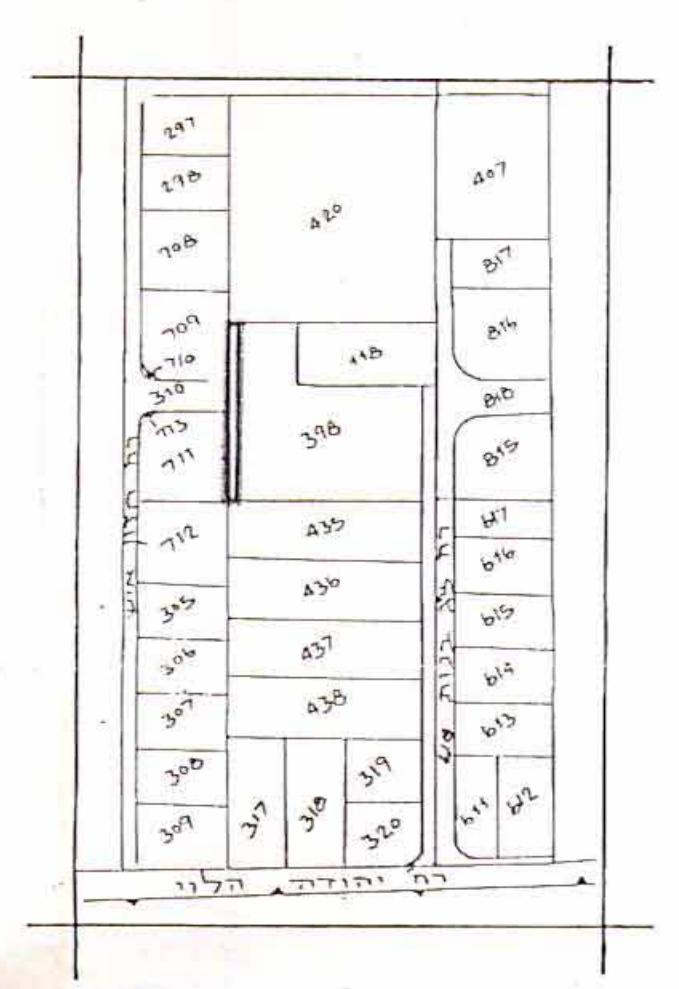 297
298
708
709
710
310
713
711
712
305
306
307
308
309
420
118
398
435
436
437
438
317
318
319
320
407
817
816
818
815
617
616
615
614
613
611
612
רח'
רח'
רח' יהודה הלוי